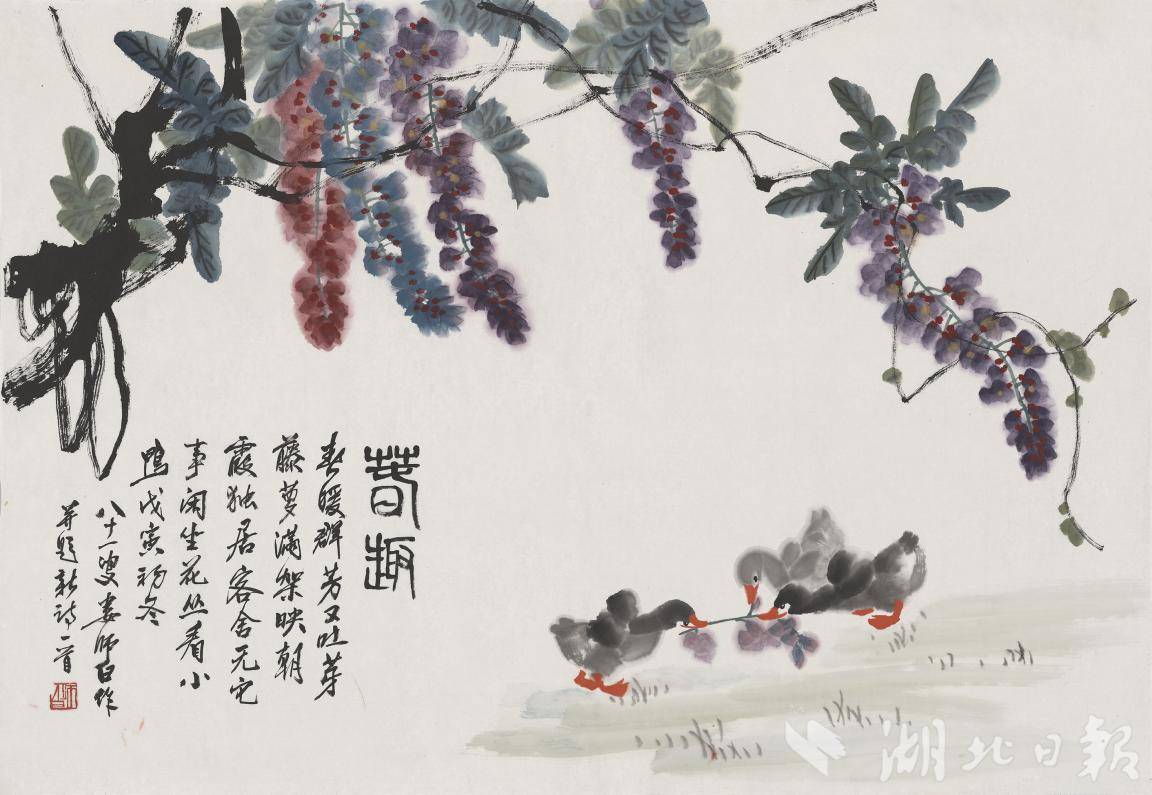 春趣
春暖群芳又吐芽
藤萝满架映朝
霞独居客舍无它
事闲坐花丛看小
鸭戊寅初冬
八十一叟娄师白作
并题新诗一首
湖北日報